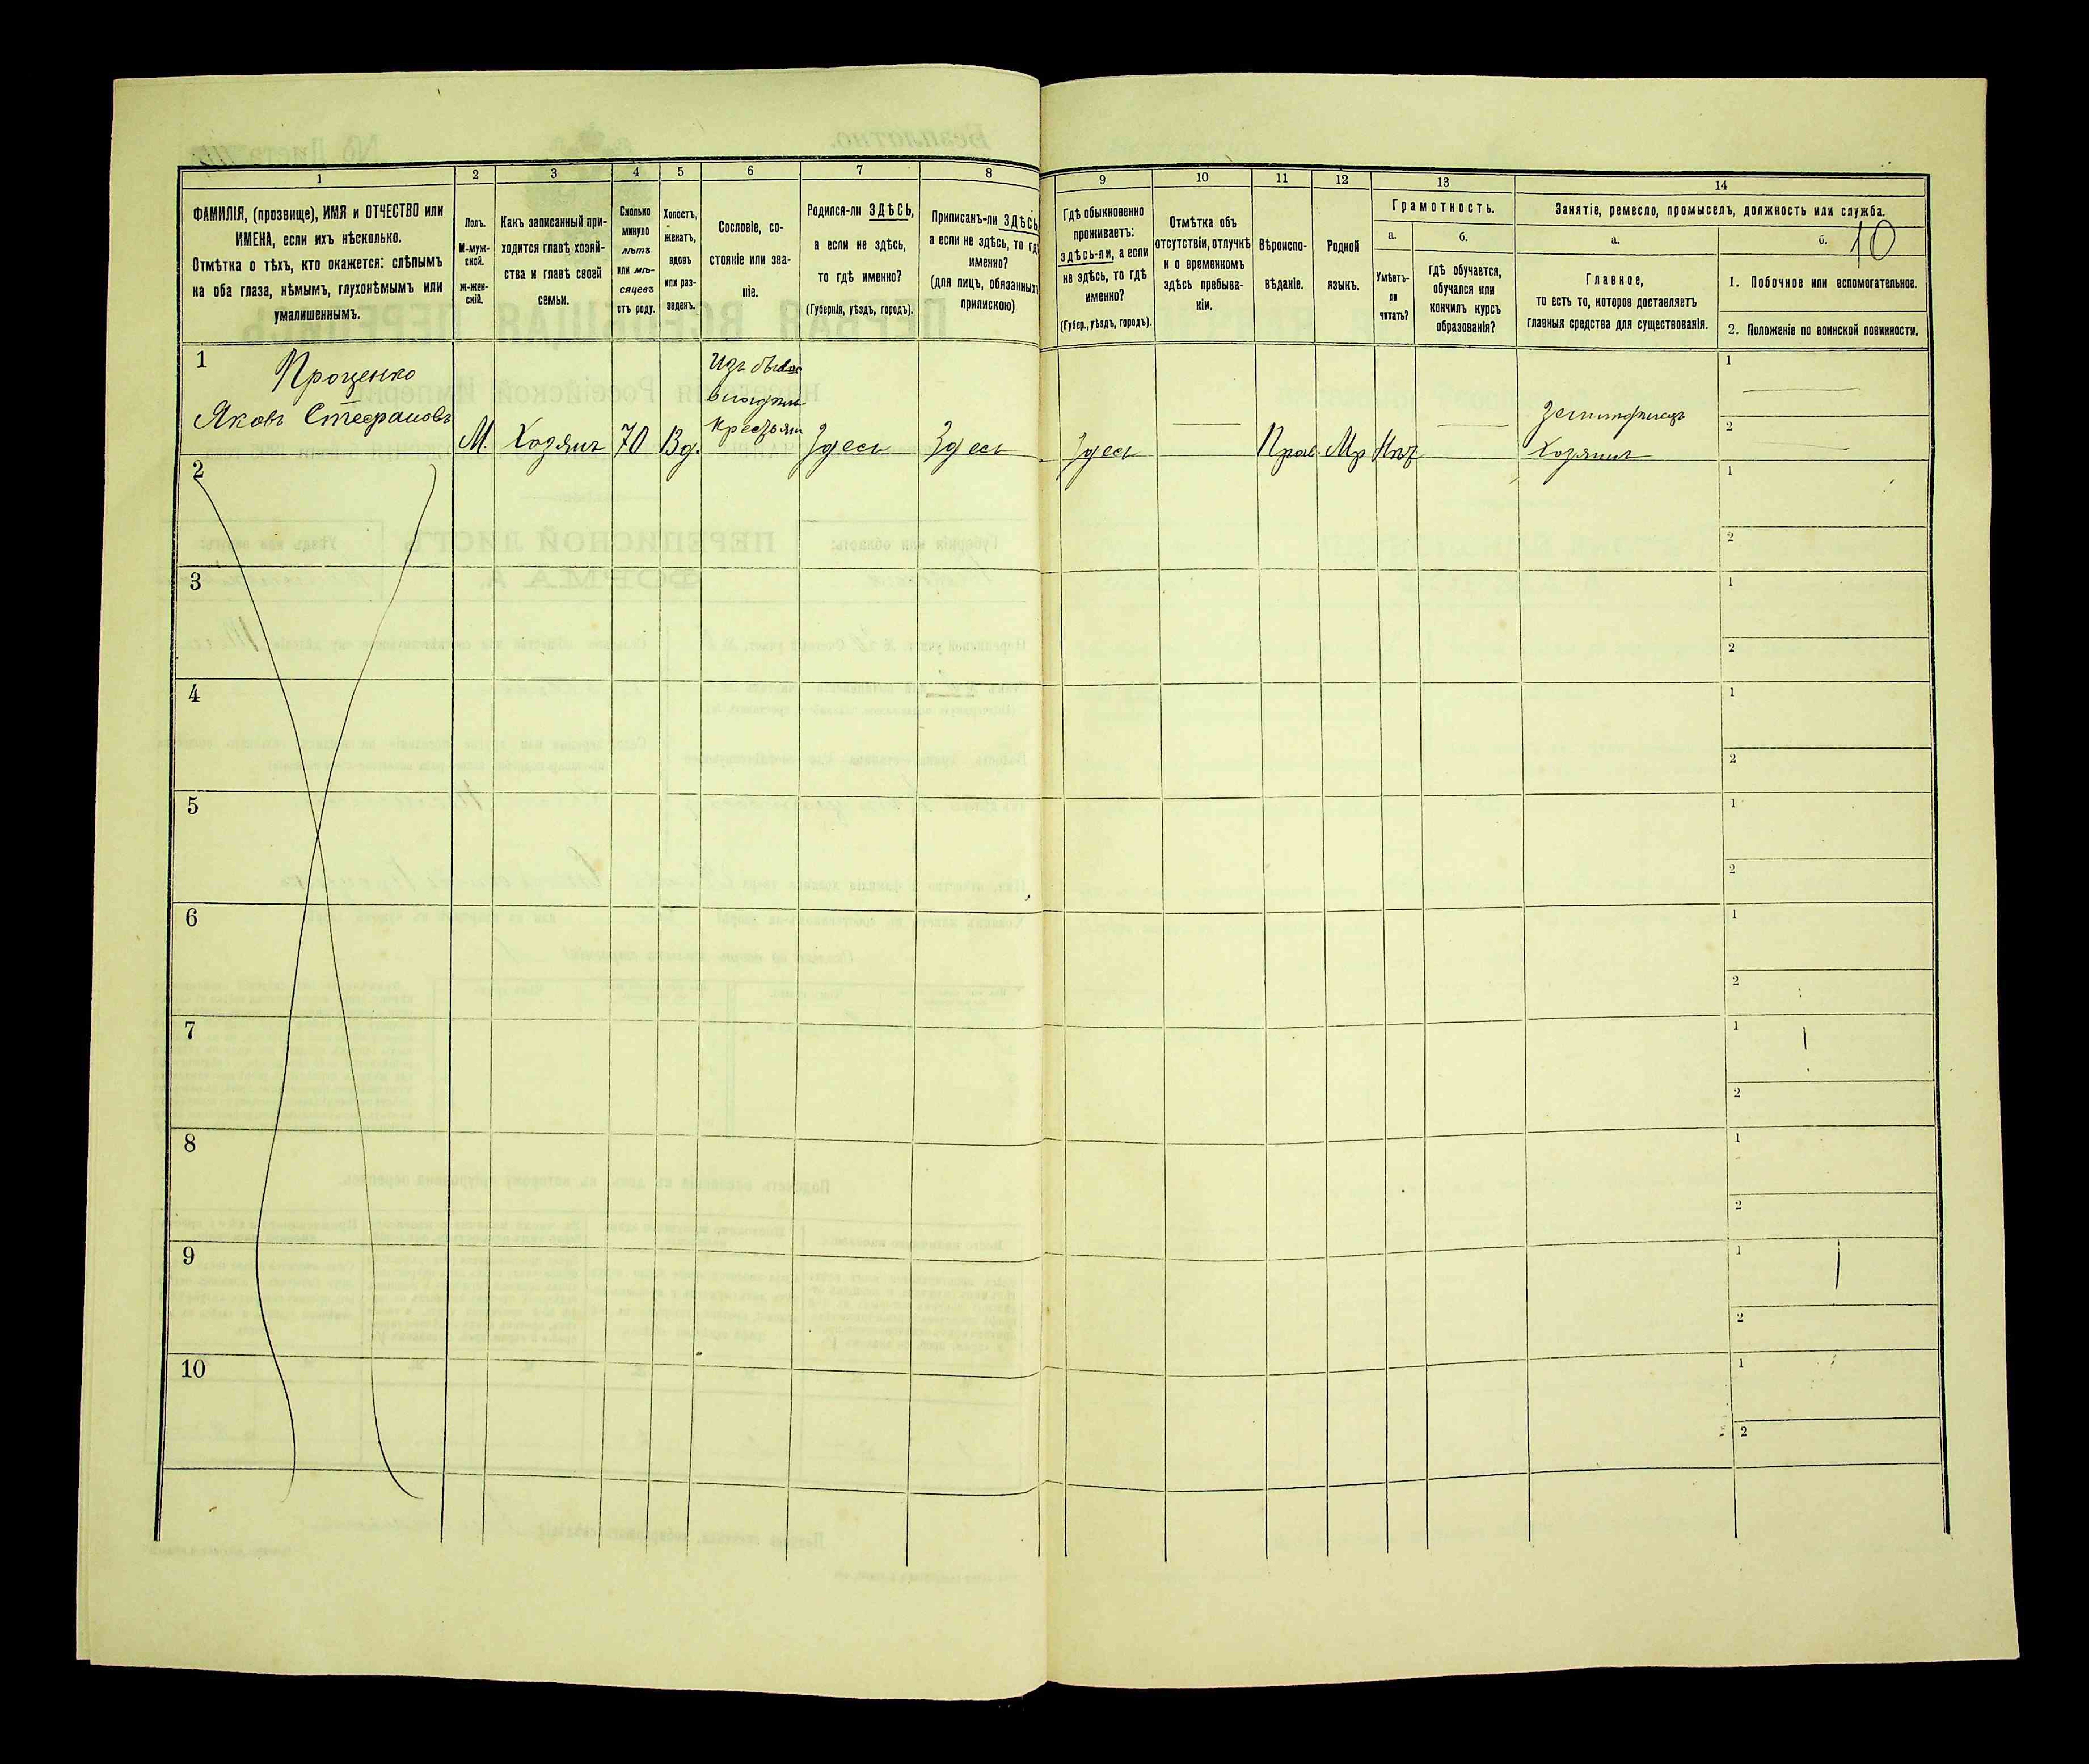 1
2
3
4
5
6
7
8
ФАМИЛІЯ, (прозвище), ИМЯ и ОТЧЕСТВО или
ИМЕНА, если ихъ нѣсколько.
Отмѣтка о тѣхъ, кто окажется: слѣпымъ
на оба глаза, нѣмымъ, глухонѣмымъ или
умалишеннымъ.
Полъ.
М-муж-
ской.
Ж-жен-
скій.
Какъ записанный при-
ходится главѣ хозяй-
ства и главѣ своей
семьи.
Сколько
минуло
лѣтъ
или мѣ-
сяцевъ
отъ роду.
Холостъ,
женатъ,
вдовъ
или раз-
веденъ.
Сословіе, со-
стояніе или зва-
ніе.
Родился-ли ЗДѢСЬ,
а если не здѣсь,
то гдѣ именно?
(Губернія, уѣздъ, городъ).
Приписанъ-ли ЗДѢСЬ,
а если не здѣсь, то гдѣ
именно?
(для лицъ, обязанныхъ
припискою)
9
10
11
12
13
14
Гдѣ обыкновенно
проживаетъ:
здѣсь-ли, а если
не здѣсь, то гдѣ
именно?
(Губер., уѣздъ, городъ).
Отмѣтка объ
отсутствіи, отлучкѣ
и о временномъ
здѣсь пребыва-
ніи.
Вѣроиспо-
вѣданіе.
Родной
языкъ.
Грамотность.
а.
б.
Умѣетъ-
ли
читать?
гдѣ обучается,
обучался или
кончилъ курсъ
образованія?
Занятіе, ремесло, промыселъ, должность или служба.
а.
б.
10
Главное,
то есть то, которое доставляетъ
главныя средства для существованія.
1. Побочное или вспомогательное.
2. Положеніе по воинской повинности.
1
Проценко
Яковъ Стефановъ
М.
Хозяинъ
70
Вд.
Изъ
Здесь
Здесь
Здесь
Прав.
Мр
Хозяинъ
1
2
2
1
2
3
1
2
4
1
2
5
1
2
6
1
2
7
1
2
8
1
2
9
1
2
10
1
2